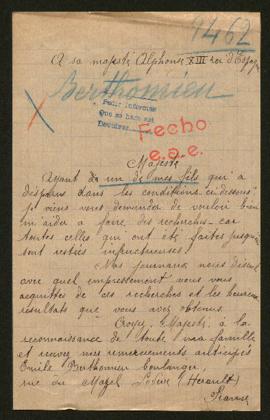 9462
A sa majesté Alphonse XIII roi d'Espagne
Berthomieu
Pedir informes
Que se hace así
Decirles
Fecho
e.a.e.
Majesté
Ayant un de mes fils qui a
disparu dans les conditions ci-dessous
je viens vous demander de vouloir bien
m'aider a faire des recherches car
toutes celles qui ont été faites jusqu'ici
sont restées infructueuses.
Nos journaux nous disent
avec quel empressement vous vous
acquittez de ces recherches et les heureux
résultats que vous avez obtenus.
Croyez, Majesté, à la
reconnaissance de toute ma famille
et recevez mes remerciements anticipés
Emile Berthomieu boulanger,
rue du Mazel Lodève (Herault)
France